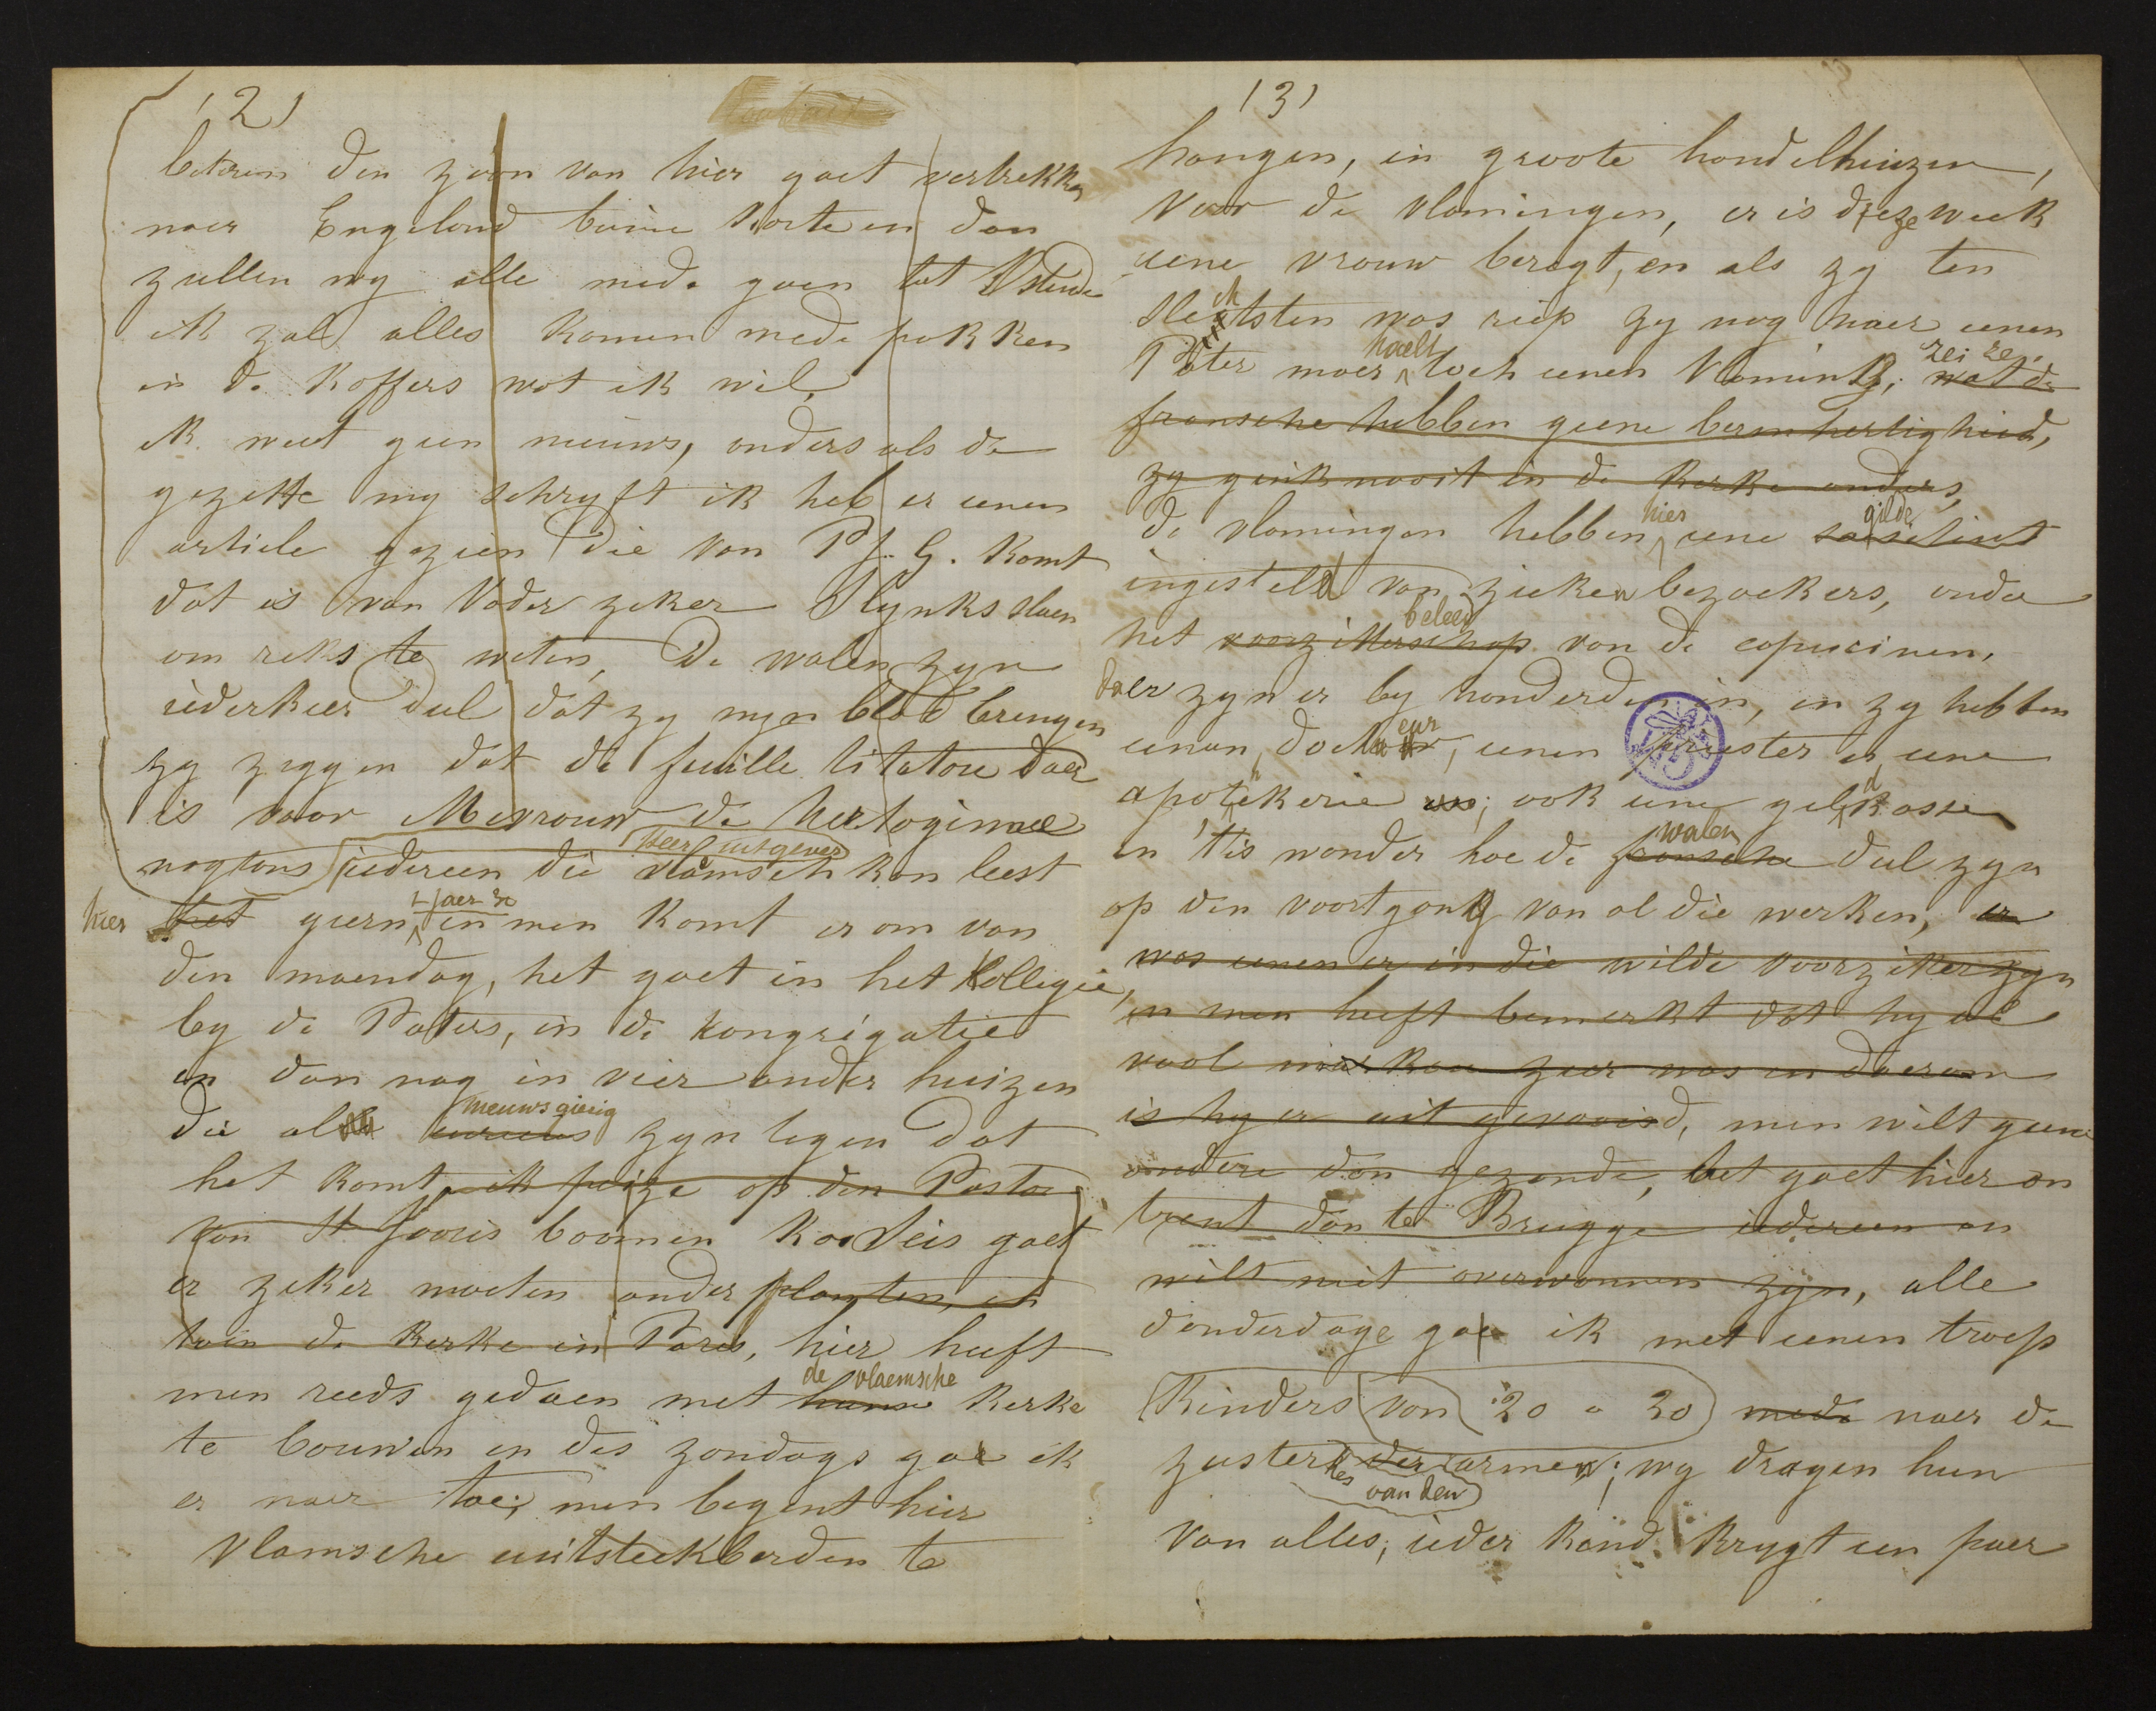 (2)
beteren den zoon van hier gaet vertrekken
naer Engeland binne korte en dan
zullen wy alle mede gaen tot Ostende
ik zal alles komen mede pakken
in de koffers wat ik wil,
ik weet geen nieuws, anders als de
gazette my schryft ik heb er eenen
article gezien die van Pf. G. komt
dat is van Vader zeker Slynks slaen
om reks te weten, De walen zyn
iederkeer dul dat zy myn blad brengen
zy zeggen dat de feuille litatore daer
is voor Mevrouw de Hertoginnee
Heer uitgever
nogtans iedereen die vlamsch kan leest
't jaer 30
hier het geern en men komt er om van
den maendag, het gaet in het kollegie,
by de Paters, in de kongregatie
en dan nog in vier ander huizen
nieuwsgierig
die al curieus zyn tegen dat
het komt, ik peize op den Pastor
van St Jooris boomen kooleis gaet
er zeker moeten ander planten, et
toin de kerke in Pares, hier heeft
de vlaemsche
men reeds gedaen met hunne kerke
te bouwen en des zondags gae ik
er naer toe; men begint hier
vlamsche uuitsteekberden te
(3)
hangen, in groote handelhuizen,
voor de vlamingen, er is dieze week
eene vrouw beregt, en als zy ten
slechtsten was riep zy nog naer eenen
haelt zei ze.
Pater maer toch eenen Vlamink, wat de
fransche hebben geene bermhertigheid,
zy gink nooit in de kerke anders,
hier gilde
de vlamingen hebben eene societeit
ingesteld van zieken bezoekers, onder
beleed
het voorzitterschap van de capucinen,
daer zyn er by honderden in, en zy hebben
eenen, docteur, eenen priester en eene
apotekerie; ook eene geldkasse
walen
en 't is wonder hoe de fransche dul zyn
op den voortgang van al die werken, er
was eenen er in die wilde voorzitter zyn
en men heeft bemerkt dat hy al
was en daerom
is hy er uit gevooisd, men wilt geene
andere dan gezonde, het gaet hier on
trent dan te Brugge iedereen en
wilt niet overwonnen zyn, alle
donderdage gae ik met eenen troep
Kinders van 20 a 30 mede naer de
zusterkes der armen; wy dragen hun
van den
van alles, ieder kind krygt een paer